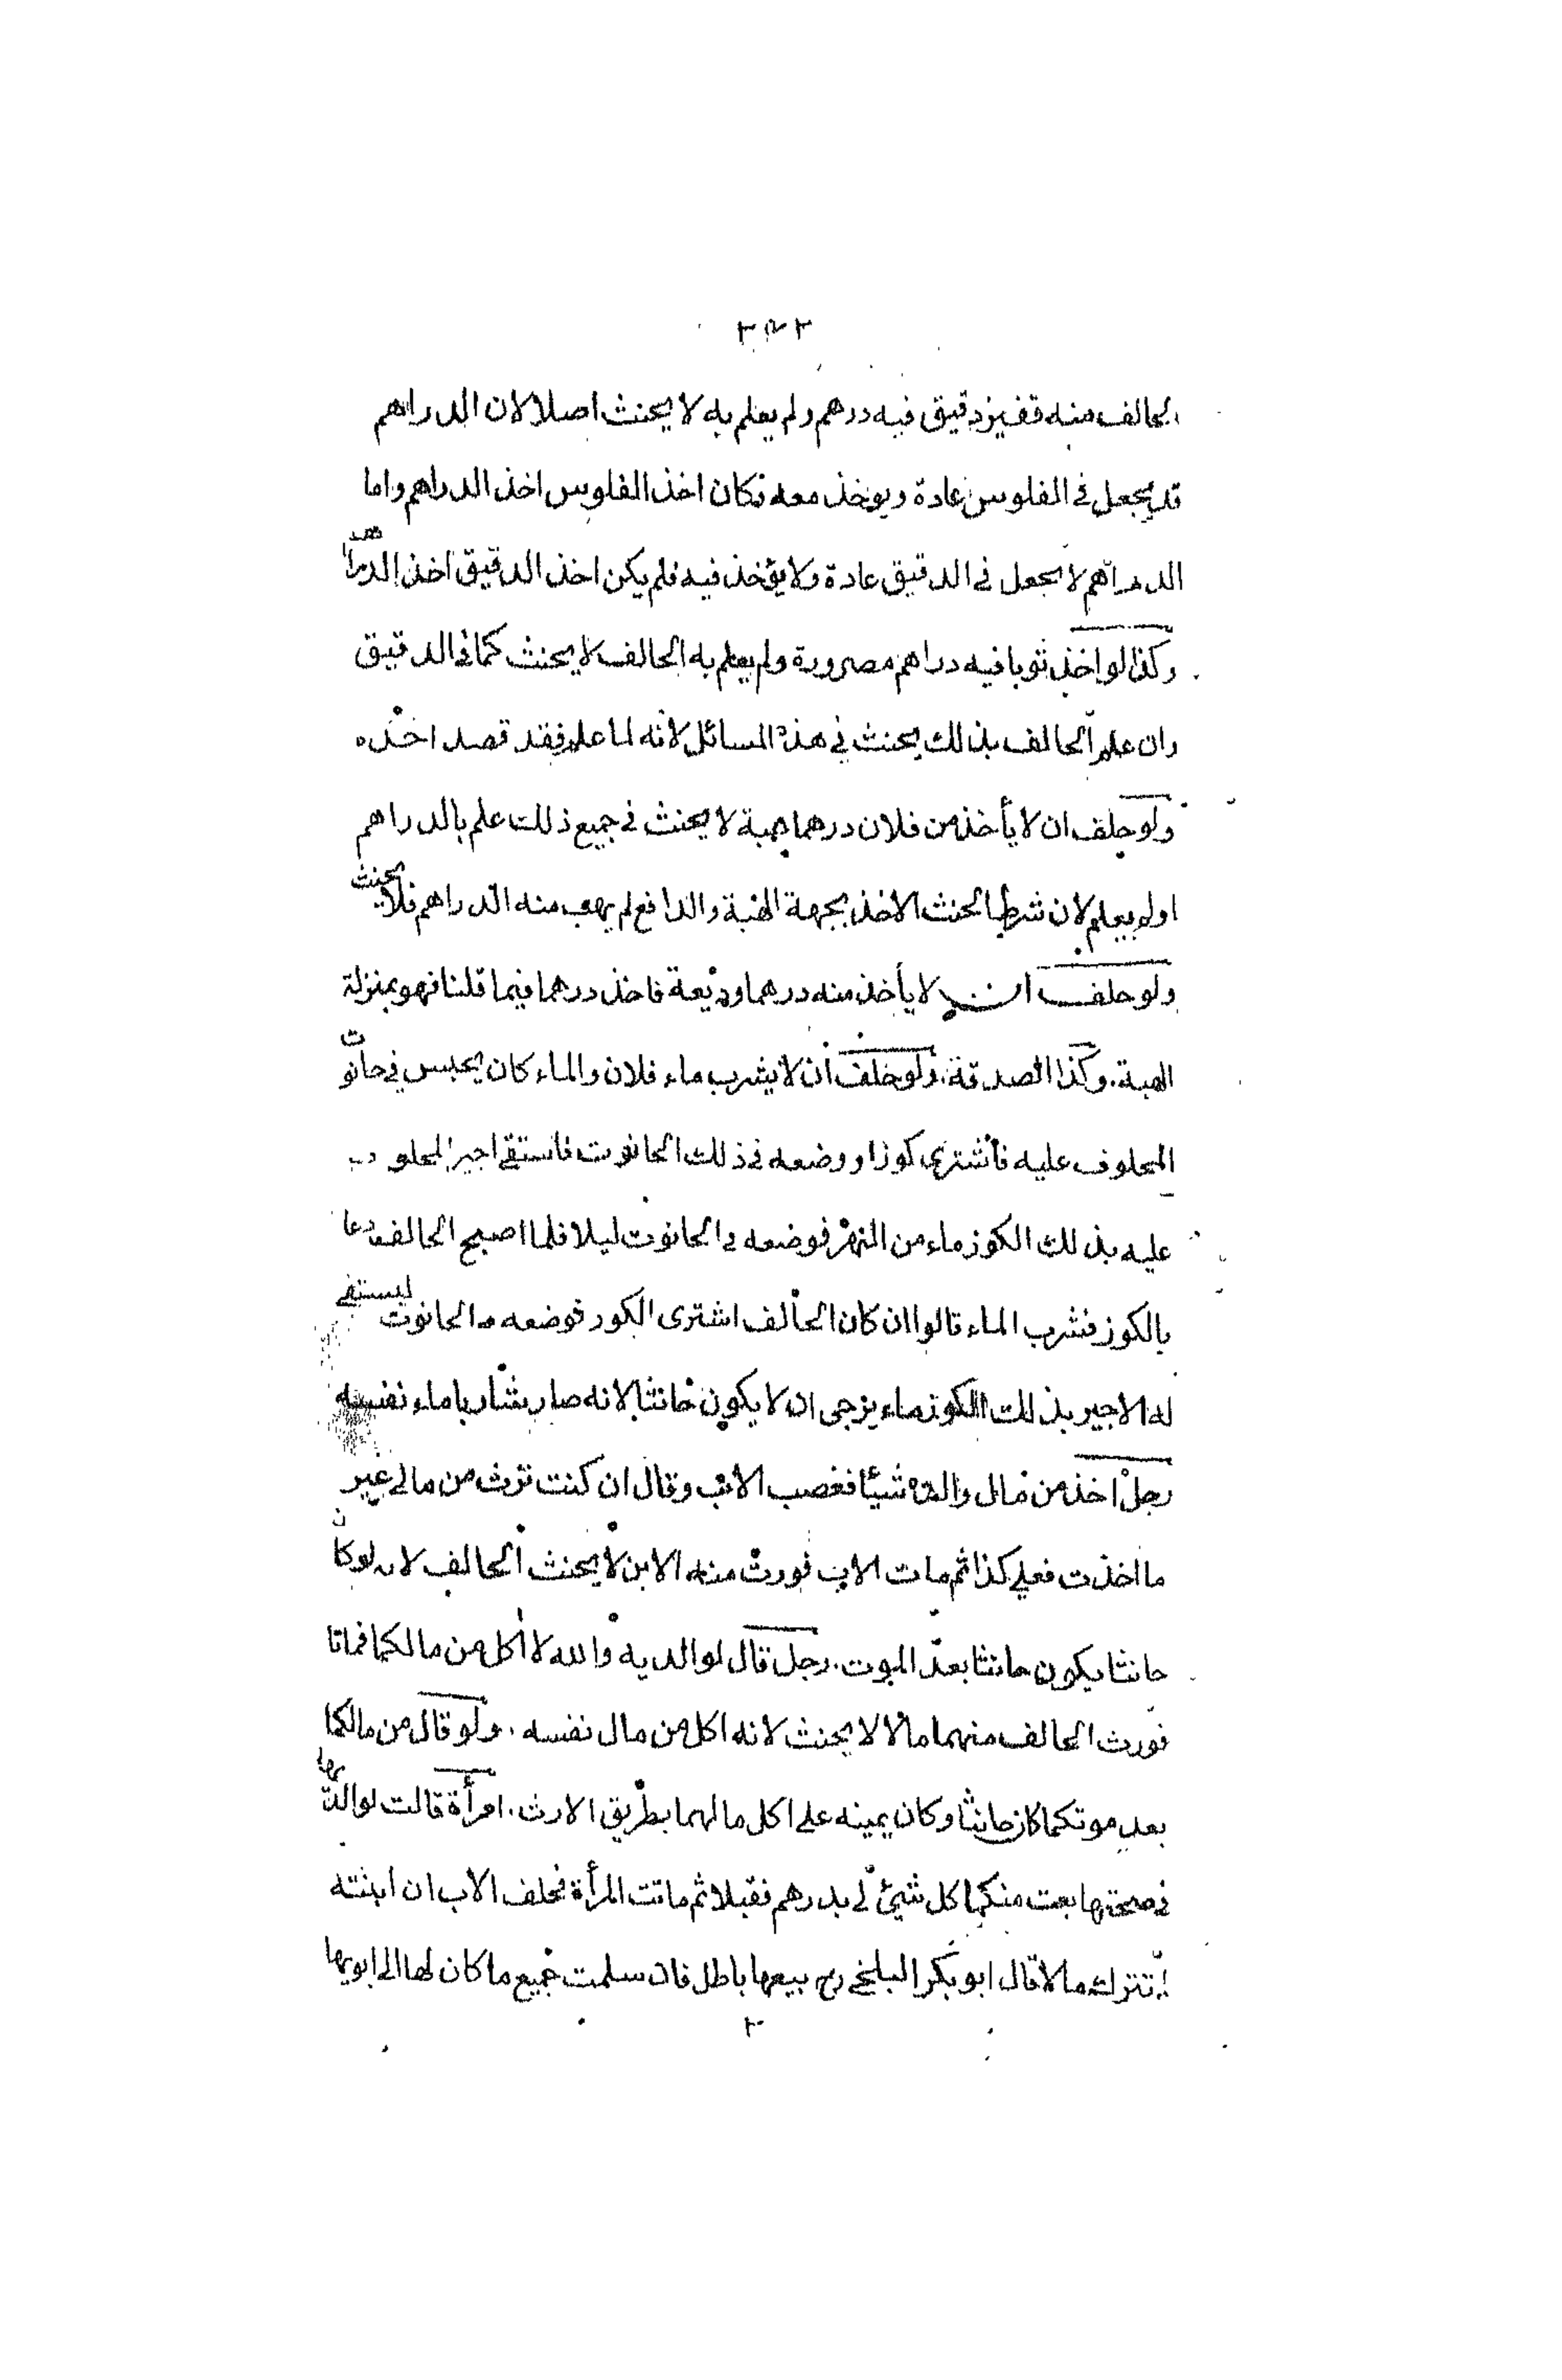 الحالف منه قفيز دقيق فيه درهم ولم يعلم به لا يحنث اصلا لان الدراهم
قد يجعل في الفلوس عادة ويوخذ معه فكان اخذ الفلوس اخذ الدراهم واما
الدراهم لا يجعل في الدقيق عادة ولا يؤخذ فيه فلم يكن اخذ الدقيق اخذ الدراهم
وكذا لو اخذ ثوبا فيه دراهم مصرورة ولم يعلم به الحالف لا يحنث كما في الدقيق
وان علم الحالف بذلك يحنث في هذه المسائل لانه لما علم فقد قصد اخذه
ولو حلف ان لا يأخذ من فلان درهما هبة لا يحنث في جميع ذلك علم بالدراهم
او لم يعلم لان شرط الحنث الاخذ بجهة الهبة والدافع لم يهب منه الدراهم فلا يحنث
ولو حلف ان لا يأخذ منه درهما وديعة فاخذ درهما فيما قلنا فهو بمنزلة
الهبة. وكذا الصدقة. ولو حلف ان لا يشرب ماء فلان والماء كان يحبس في حانوت
المحلوف عليه فاشترى كوزا ووضعه في ذلك الحانوت فاستقى اجير المحلوف
عليه بذلك الكوز ماء من النهر فوضعه في الحانوت ليلا فلما اصبح الحالف دعا
بالكوز فشرب الماء قالوا ان كان الحالف اشترى الكوز فوضعه في الحانوت ليستقي
له الاجير بذلك الكوز ماء يرجى ان لا يكون حانثا لانه صار شاربا ماء نفسه
رجل اخذ من مال والده شيئا فغصب الاب وقال ان كنت ترث من مالي غير
ما اخذت فعلي كذا ثم مات الاب فورث منه الابن لا يحنث الحالف لانه لو كان
حانثا يكون حانثا بعد الموت. رجل قال لوالديه والله لا اكل من مالكما فماتا
فورث الحالف منهما مالا لا يحنث لانه اكل من مال نفسه. ولو قال من مالكما
بعد موتكما كان حانثا وكان يمينه على اكل مالهما بطريق الارث. امرأة قالت لوالديها
في صحتها بعت منكما كل شيئ لي بدرهم فقبلا ثم ماتت المرأة فحلف الاب ان ابنته
لم تترك مالا قال ابو بكر البلخي رح بيعها باطل فان سلمت جميع ما كان لها الى ابويها